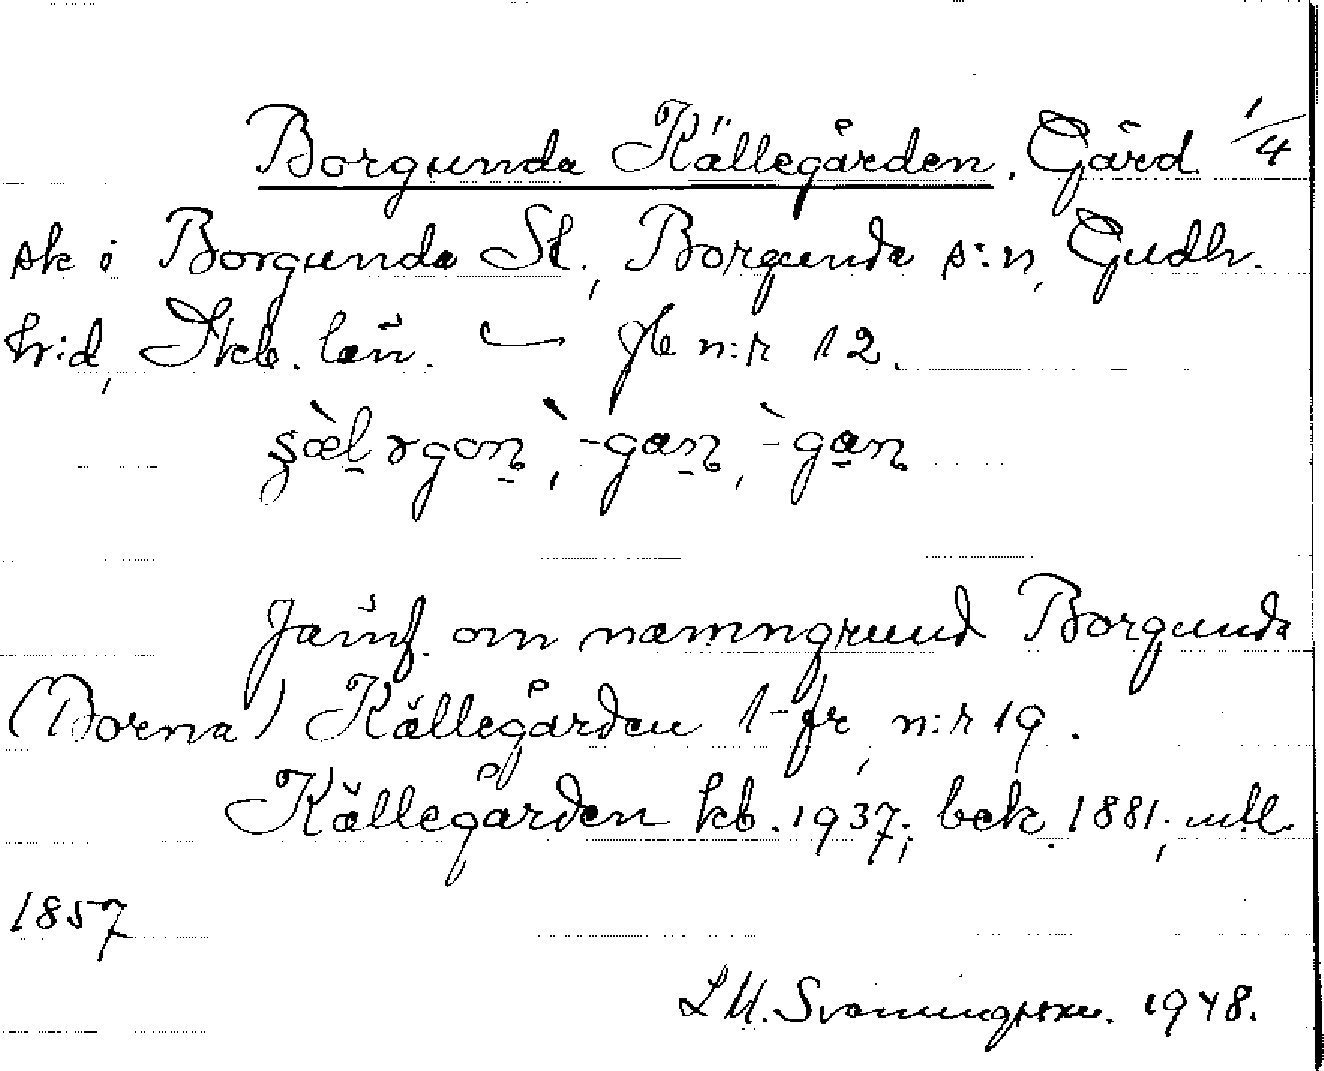 Borgunda Källegården. Gård 1/4
sk i Borgunda St., Borgunda s:n, Gudh.
h:d, Skb. län. — jb n:r 12.
-gan, -gan
Jämf. om namngrund Borgunda
(Borna) Källegården 1-fr, n:r 19.
Källegården kb. 1937; bek. 1881; mtl.
1857
1948.